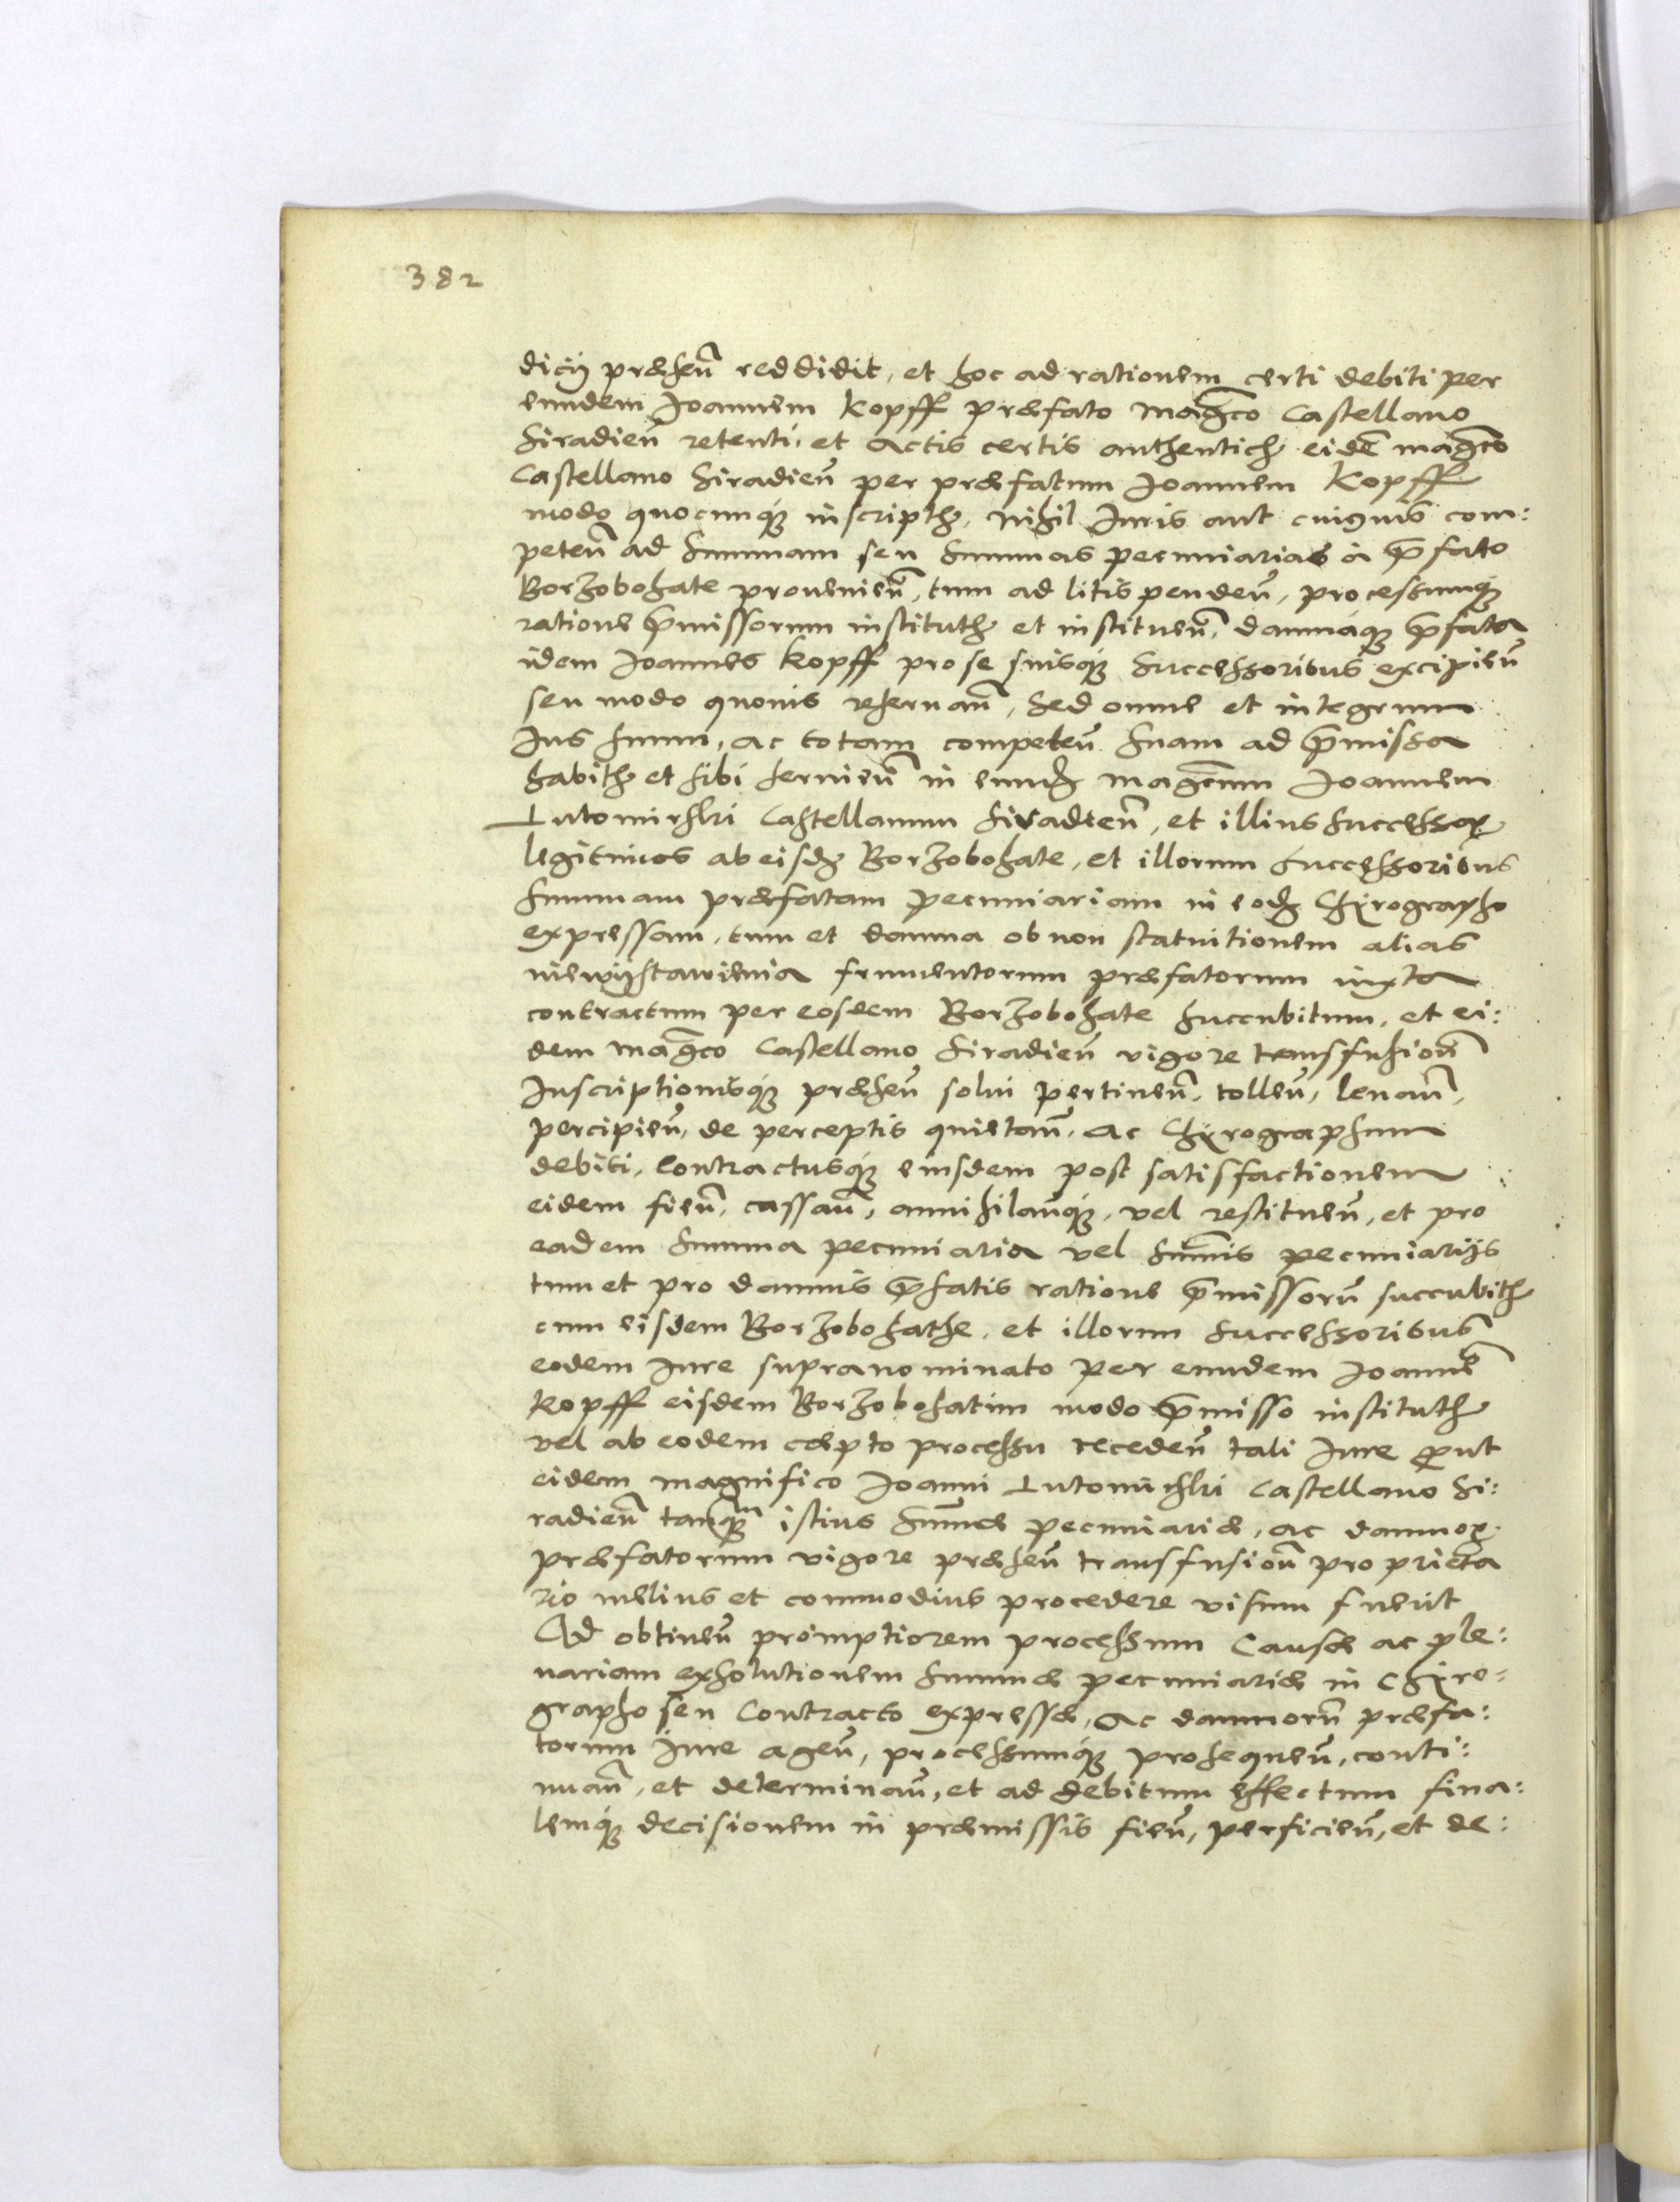 382
dicÿ præsen̄ reddidit, et hoc ad rationem certi debiti per
eundem Joannem Kopff præfato Mag̃co Castellano
Siradieñ retenti, et Actis certis authenticis eidē mag̃co
Castellano Siradieñ per præfatum Joannem Kopff
modo quocunq́ inscriptis, Nihil Juris aut cuiquis com:
peteñ ad summam seu summas pecuniarias á p̃fato
Borzobohate provenieñ, tum ad litis pendeñ, processumq́
ratione p̃missorum institutis et institueñ, damnaq́ p̃fata
idem Joannes Kopff pro se suisq́ successoribus excipieñ
seu modo quovis reservañ, Sed omne et integrum
Jus suum, ac totam competeñ suam ad p̃missa
habitis et sibi servieñ in eundẽ Mag̃cum Joannem
Lutomirski Castellanum Siradieñ, et illius successores
legitimos ab eisdẽ Borzobohate, et illorum successoribus
summam præfatam pecuniariam in eodẽ Chirographo
expressam, tum et damna ob non statuitionem alias
niewystawienia frumentorum præfatorum iuxta
contractum per eosdem Borzobohate succubitum, et ei:
dem Mag̃co Castellano Siradieñ vigore transfusioñ
Inscriptionisq́ præseñ solvi pertineñ, tolleñ, levañ,
percipieñ, de perceptis quietañ, ac Chirographum
debiti, Contractusq́ eiusdem post satisfactionem
eidem fieñ, cassañ, annihilañq́, vel restitueñ, et pro
eadem summa pecuniaria vel sum̄is pecuniarijs
tum et pro damnis p̃fatis ratione p̃missorũ succubitis
cum eisdem Borzobohathe, et illorum successoribus
eodem Jure supranominato per eundem Joannẽ
Kopff eisdem Borzobohatim modo p̃misso institutis
vel ab eodem cæpto processu recedeñ tali Jure p̃ut
eidem Magnifico Joanni Lutomirski Castellano Si:
radieñ tanq̃m istius sum̄æ pecuniariæ, ac damnor̃
præfatorum vigore præseñ transfusioñ proprieta
rio melius et commodius procedere visum fuerit
Ad obtineñ promptiorem processum Causæ ac ple:
nariam exsolutionem summæ pecuniariæ in Chiro:
grapho seu Contracto expressæ, Ac damnorũ præfa:
torum Jure ageñ, processumq́ prosequeñ, conti:
nuañ, et determinañ, et ad debitum effectum fina:
lemq́ decisionem in præmissis fieñ, perficieñ, et de: